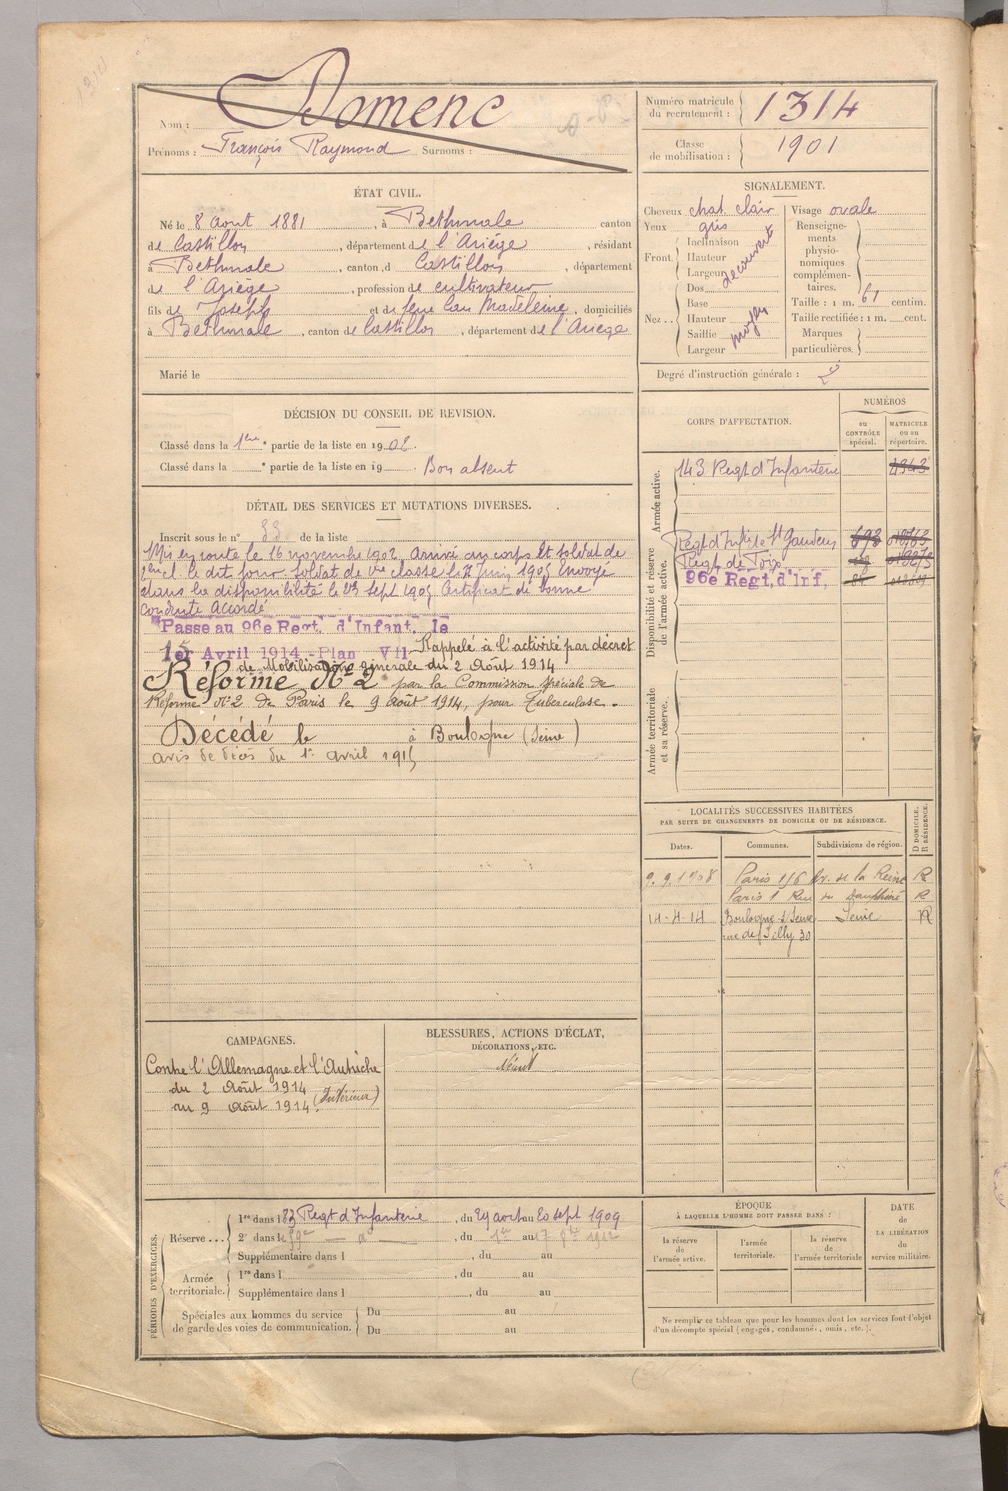 Nom : Domenc
Prénoms : François Raymond Surnoms :
Numéro matricule du recrutement : 1314
Classe de mobilisation : 1901
ÉTAT CIVIL.
Né le 8 aout 1881, à Bethmale canton
de Castillon, département de l'Ariège, résidant
à Bethmale, canton d Castillon, département
de l'Ariège, profession de cultivateur
fils de Joseph et de feue Cau Madeleine, domiciliés
à Bethmale, canton de Castillon, département de l'Ariege
Marié le
SIGNALEMENT.
Cheveux chat. clair
Yeux gris
Front. Inclinaison
Hauteur
Largeur
découvert
Nez .. Dos
Base
Hauteur
Saillie
Largeur
moyen
Visage ovale
Renseigne-
ments
physio-
nomiques
complémen-
taires.
Taille : 1 m. 61 centim.
Taille rectifiée : 1 m. cent.
Marques
particulières.
Degré d'instruction générale : 2
DÉCISION DU CONSEIL DE REVISION.
Classé dans la 1ère partie de la liste en 1902.
Classé dans la e partie de la liste en 19 Bon absent
DÉTAIL DES SERVICES ET MUTATIONS DIVERSES.
Inscrit sous le n° 33 de la liste
Mis en route le 16 novembre 1902, arrivé au corps et soldat de
2me cl. le dit jour soldat de 1re classe le juin 1905 Envoyé
dans la disponibilité le 23 sept 1905 Certificat de bonne
conduite accordé
Passe au 96e Regt. d'Infant. le
1er Avril 1914 - Plan VII Rappelé à l'activité par décret
de Mobilisation générale du 2 Août 1914
Réformé N° 2 par la Commission spéciale de
Réforme N°2 de Paris le 9 Août 1914, pour Tuberculose.
Décédé le à Boulogne (Seine)
avis de décès du 1er avril 1915
CORPS D'AFFECTATION.
NUMÉROS
au CONTRÔLE spécial.
MATRICULE ou au répertoire.
Armée active.
143 Regt d'Infanterie 4343
Disponibilité et réserve de l'armée active.
Regt d'Infrie St Gaudens
Regt de Foix
96e Regt. d'Inf.
Armée territoriale et sa réserve.
LOCALITÉS SUCCESSIVES HABITÉES
PAR SUITE DE CHANGEMENTS DE DOMICILE OU DE RÉSIDENCE.
Dates. Communes. Subdivisions de région. D DOMICILE. R RÉSIDENCE.
9.9.1908 Paris 156 Av. de la Reine R
Paris 1 Rue du Dauphiné R
14-4-14 Boulogne s/ Seine Seine R
rue de Silly 30
CAMPAGNES.
Contre l'Allemagne et l'Autriche
du 2 Août 1914
au 9 Août 1914. (Intérieur)
BLESSURES, ACTIONS D'ÉCLAT,
DÉCORATIONS, ETC.
Néant
PÉRIODES D'EXERCICES.
Réserve ... 1re dans l 83 Regt d'Infanterie, du 29 aout au 20 sept 1909
2e dans le, du 1er au 17 1912
Supplémentaire dans l, du au
Armée territoriale. 1re dans l, du au
Supplémentaire dans l, du au
Spéciales aux hommes du service
de garde des voies de communication. Du au
Du au
ÉPOQUE
À LAQUELLE L'HOMME DOIT PASSER DANS :
la réserve de l'armée active.
l'armée territoriale.
la réserve de l'armée territoriale
DATE
de
LA LIBÉRATION
du
service militaire.
Ne remplir ce tableau que pour les hommes dont les services font l'objet
d'un décompte spécial (engagés, condamnés, omis, etc.).